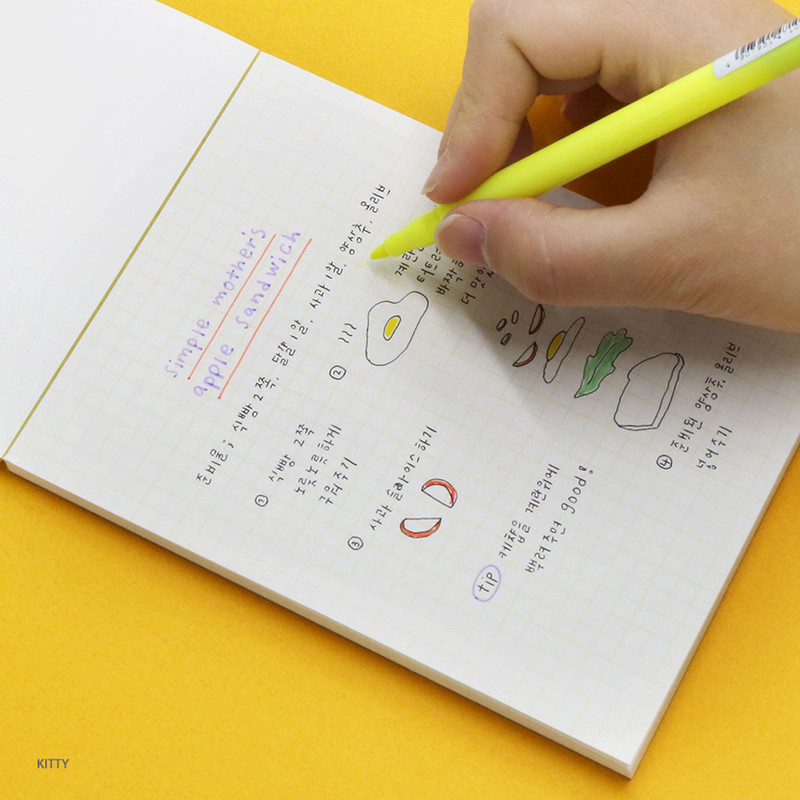 simple mother's
apple sandwich
준비물; 식빵 2쪽, 달걀 1알, 사과 1알, 양상추, 올리브
① 식빵 2쪽
노릇노릇하게
구워주기
②
계란
터트리
바짝
더 맛있
③ 사과 슬라이스하기
④ 준비된 양상추, 올리브
넣어주기
tip 케찹을 계란위에
뿌려주면 good!
KITTY